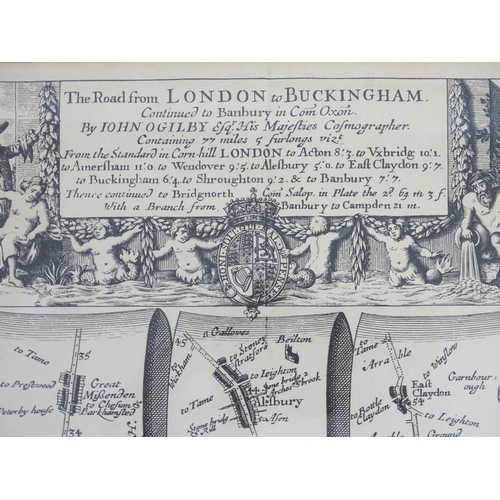 The Road from LONDON to BUCKINGHAM.
Continued to Banbury in Com Oxon.
By IOHN OGILBY Esqr. His Majesties Cosmographer.
Containing 77 miles 5 furlongs vizt.
From the Standard in Corn-hill LONDON to Acton 8'.3. to Vxbridg 10'.1.
to Amersham 11'.0. to Wendover 9'.5. to Alesbury 5'.0. to East Claydon 9'.7.
to Buckingham 6'.4. to Shroughton 9'.2. & to Banbury 7'.7.
Thence continued to Bridgnorth Com Salop. in Plate the 2d. 63 m 3 f.
With a Branch from Banbury to Campden 21 m.
to Tame
35
to Prestwood
Great
Missenden
to Chesum &
Barkhamsted
Peterby house
34
Gallowes
45
to Wickham
to Stoney
Stratford
Beilton
to Leighton
44
Stone bridg 2
Arches & brook
to Tame
Alesbury
Stone bridg
& Rill
to Asen
to Tame
Arrable
to Winslow
East
Claydon
54
Garnbour
ough
to Botle
Claydon
to Leighton
Arrable
Ground